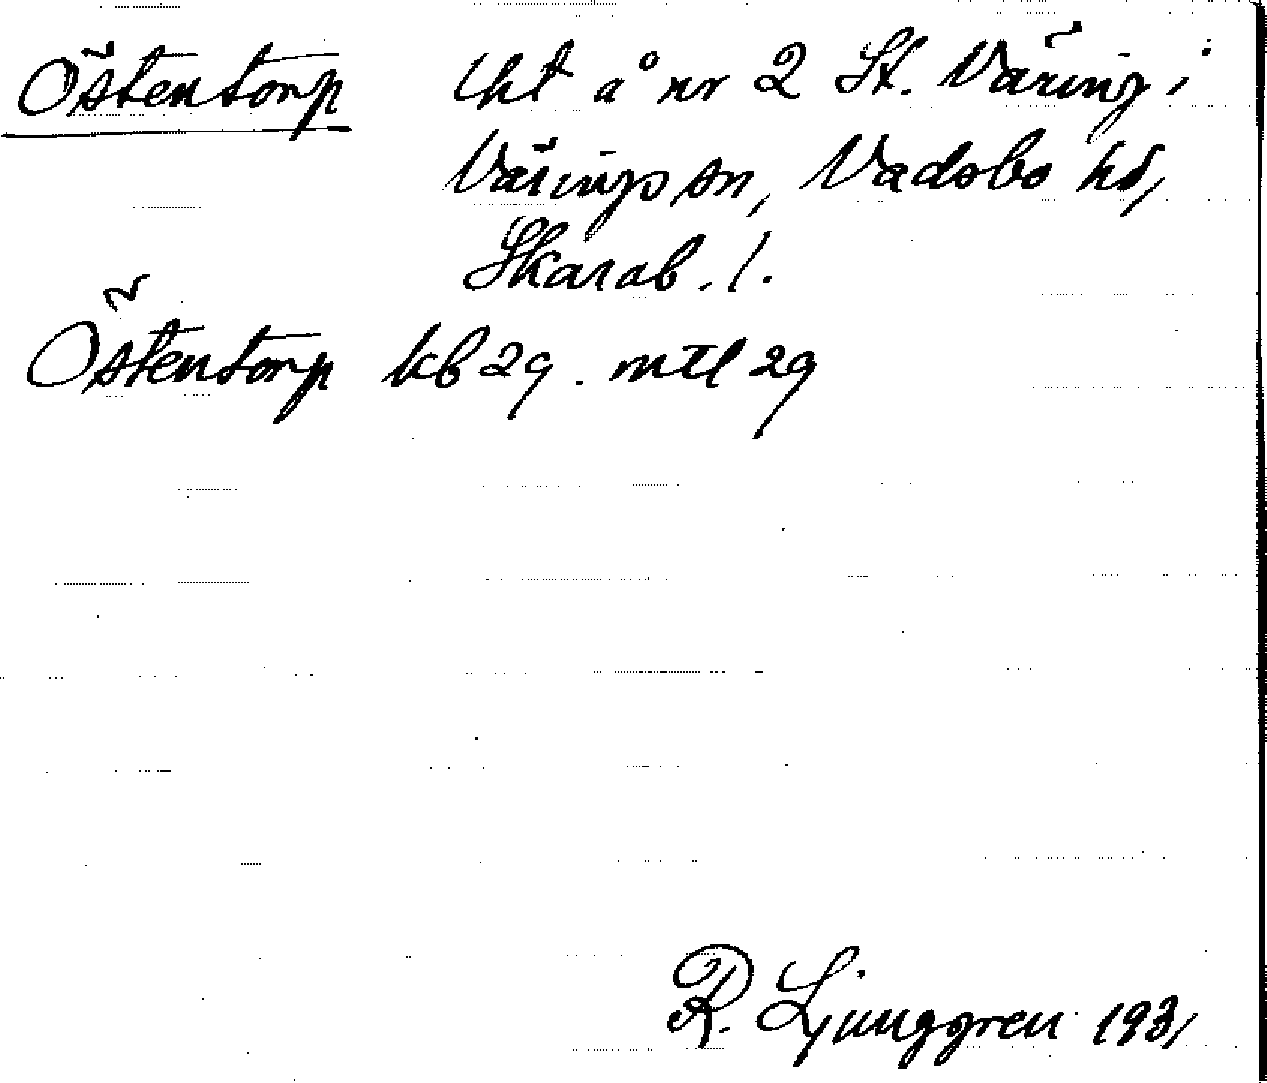 Östentorp tht å nr 2 St. Väring i
Värings sn, Vadsbo hd,
Skarab. l.
Östentorp kb 29. mtl 29
R. Ljunggren 1931